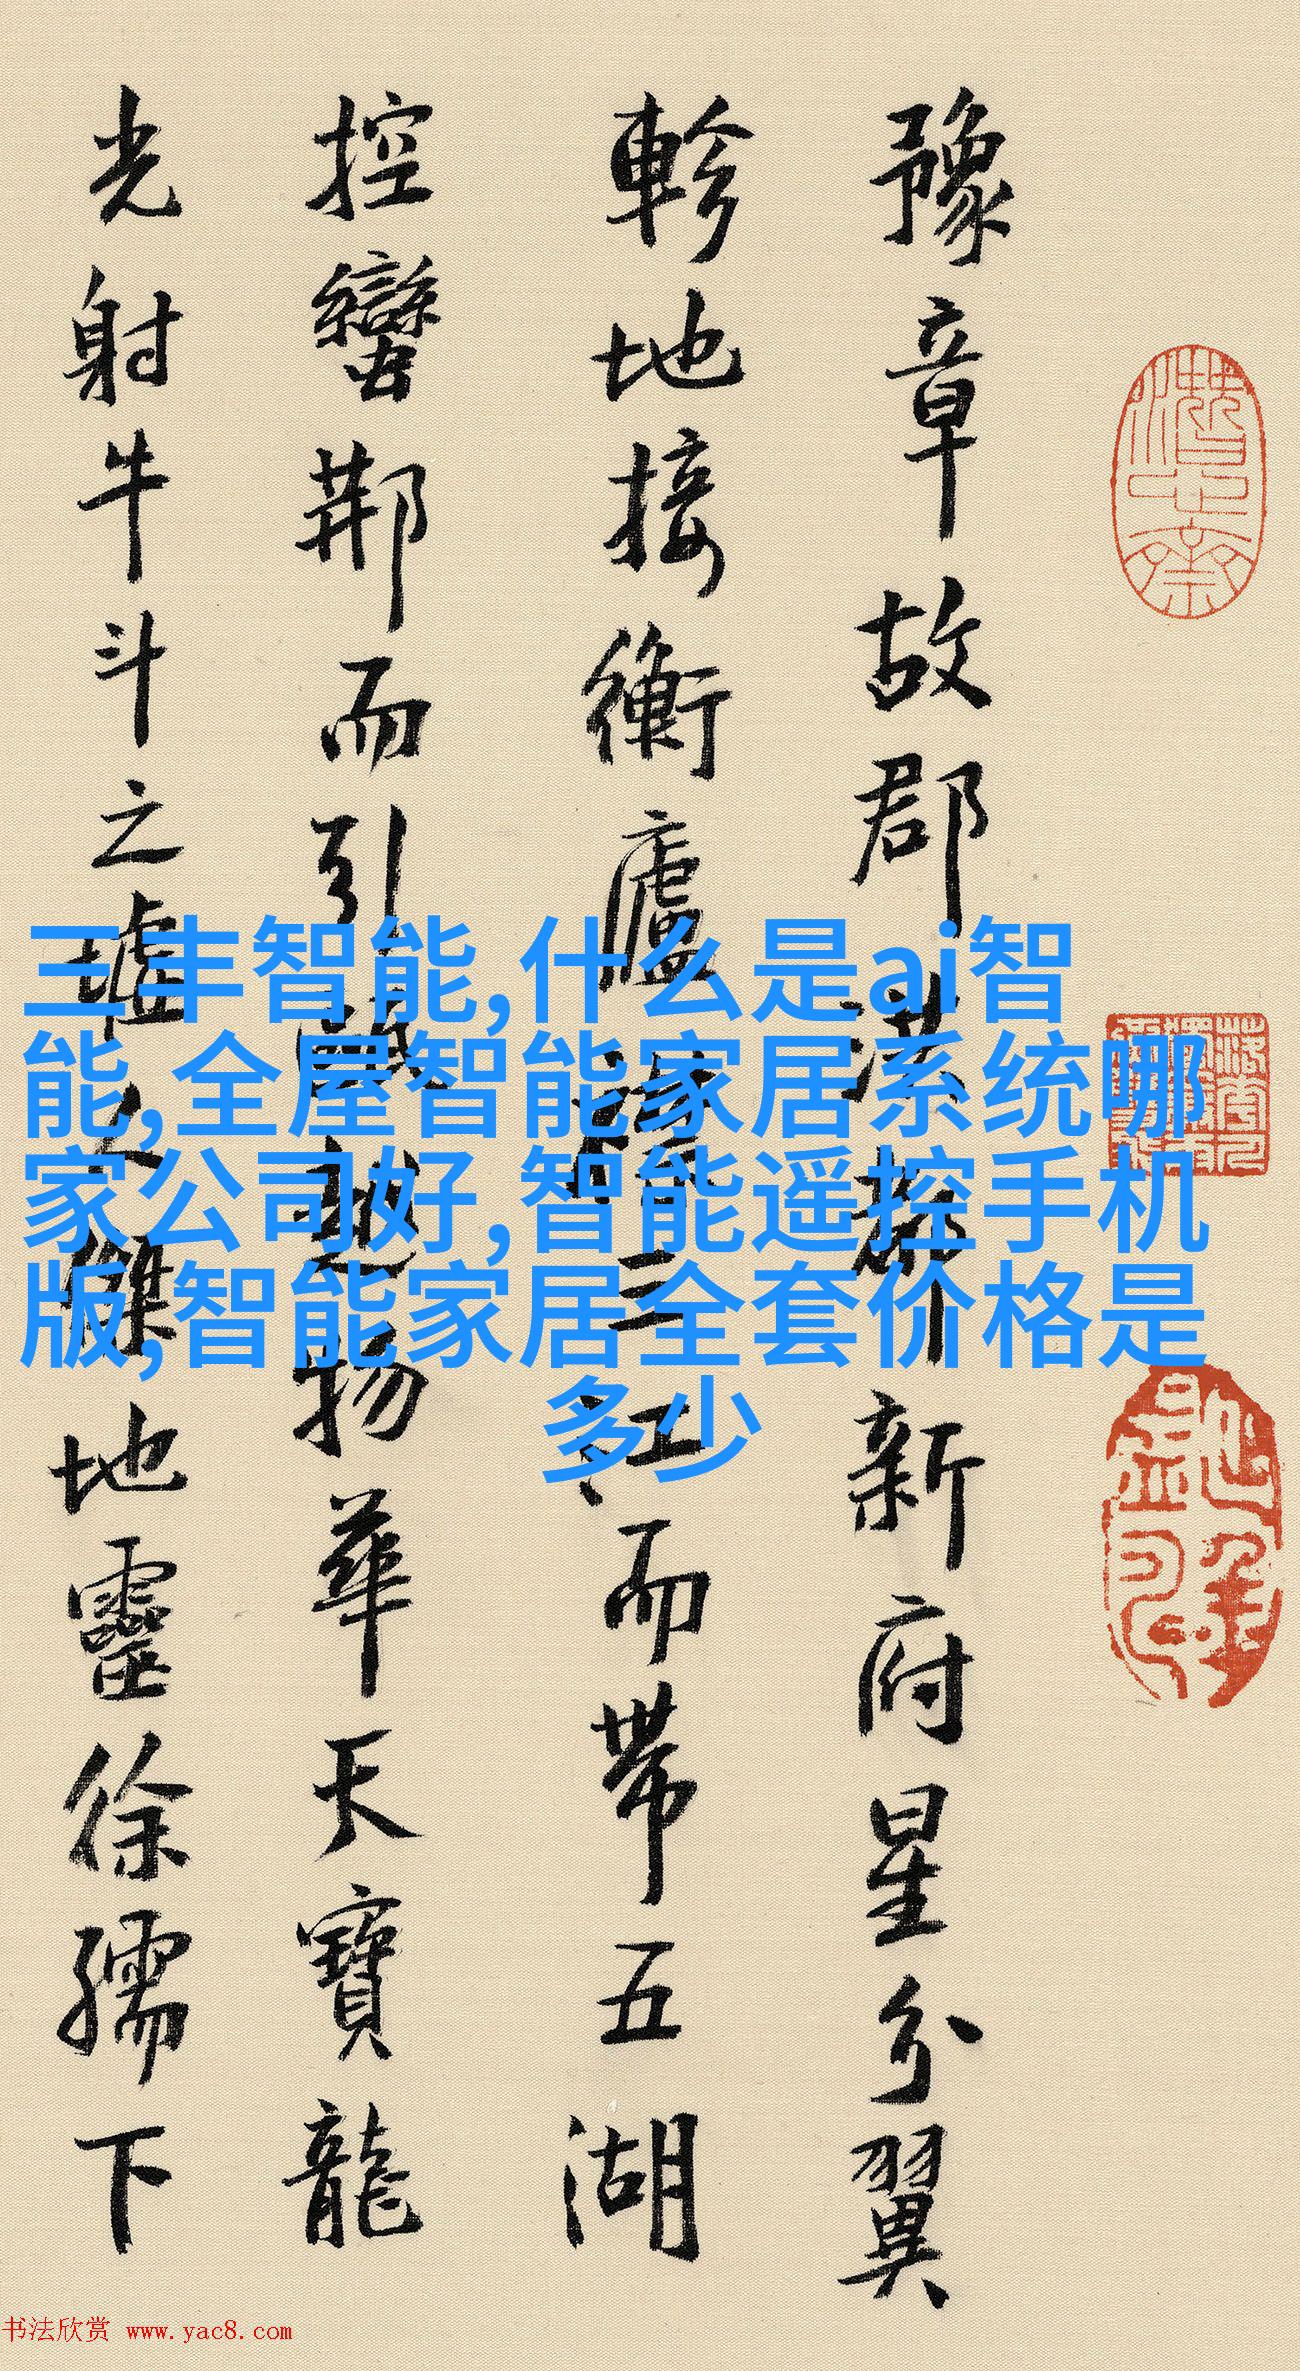 豫章故郡洪都新府星分翼
軫地接衡廬襟三江而帶五湖
控蠻荆而引甌越物華天寶龍
光射牛斗之墟人傑地靈徐孺下
三丰智能,什么是ai智
能,全屋智能家居系统哪
家公司好,智能遥控手机
版,智能家居全套价格是
多少
书法欣赏 www.yac8.com